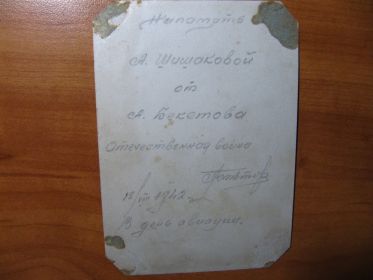 На память
А. Шишаковой
от
А. Бекетова
Отечественная война
18/VIII 1942
В день авиации.